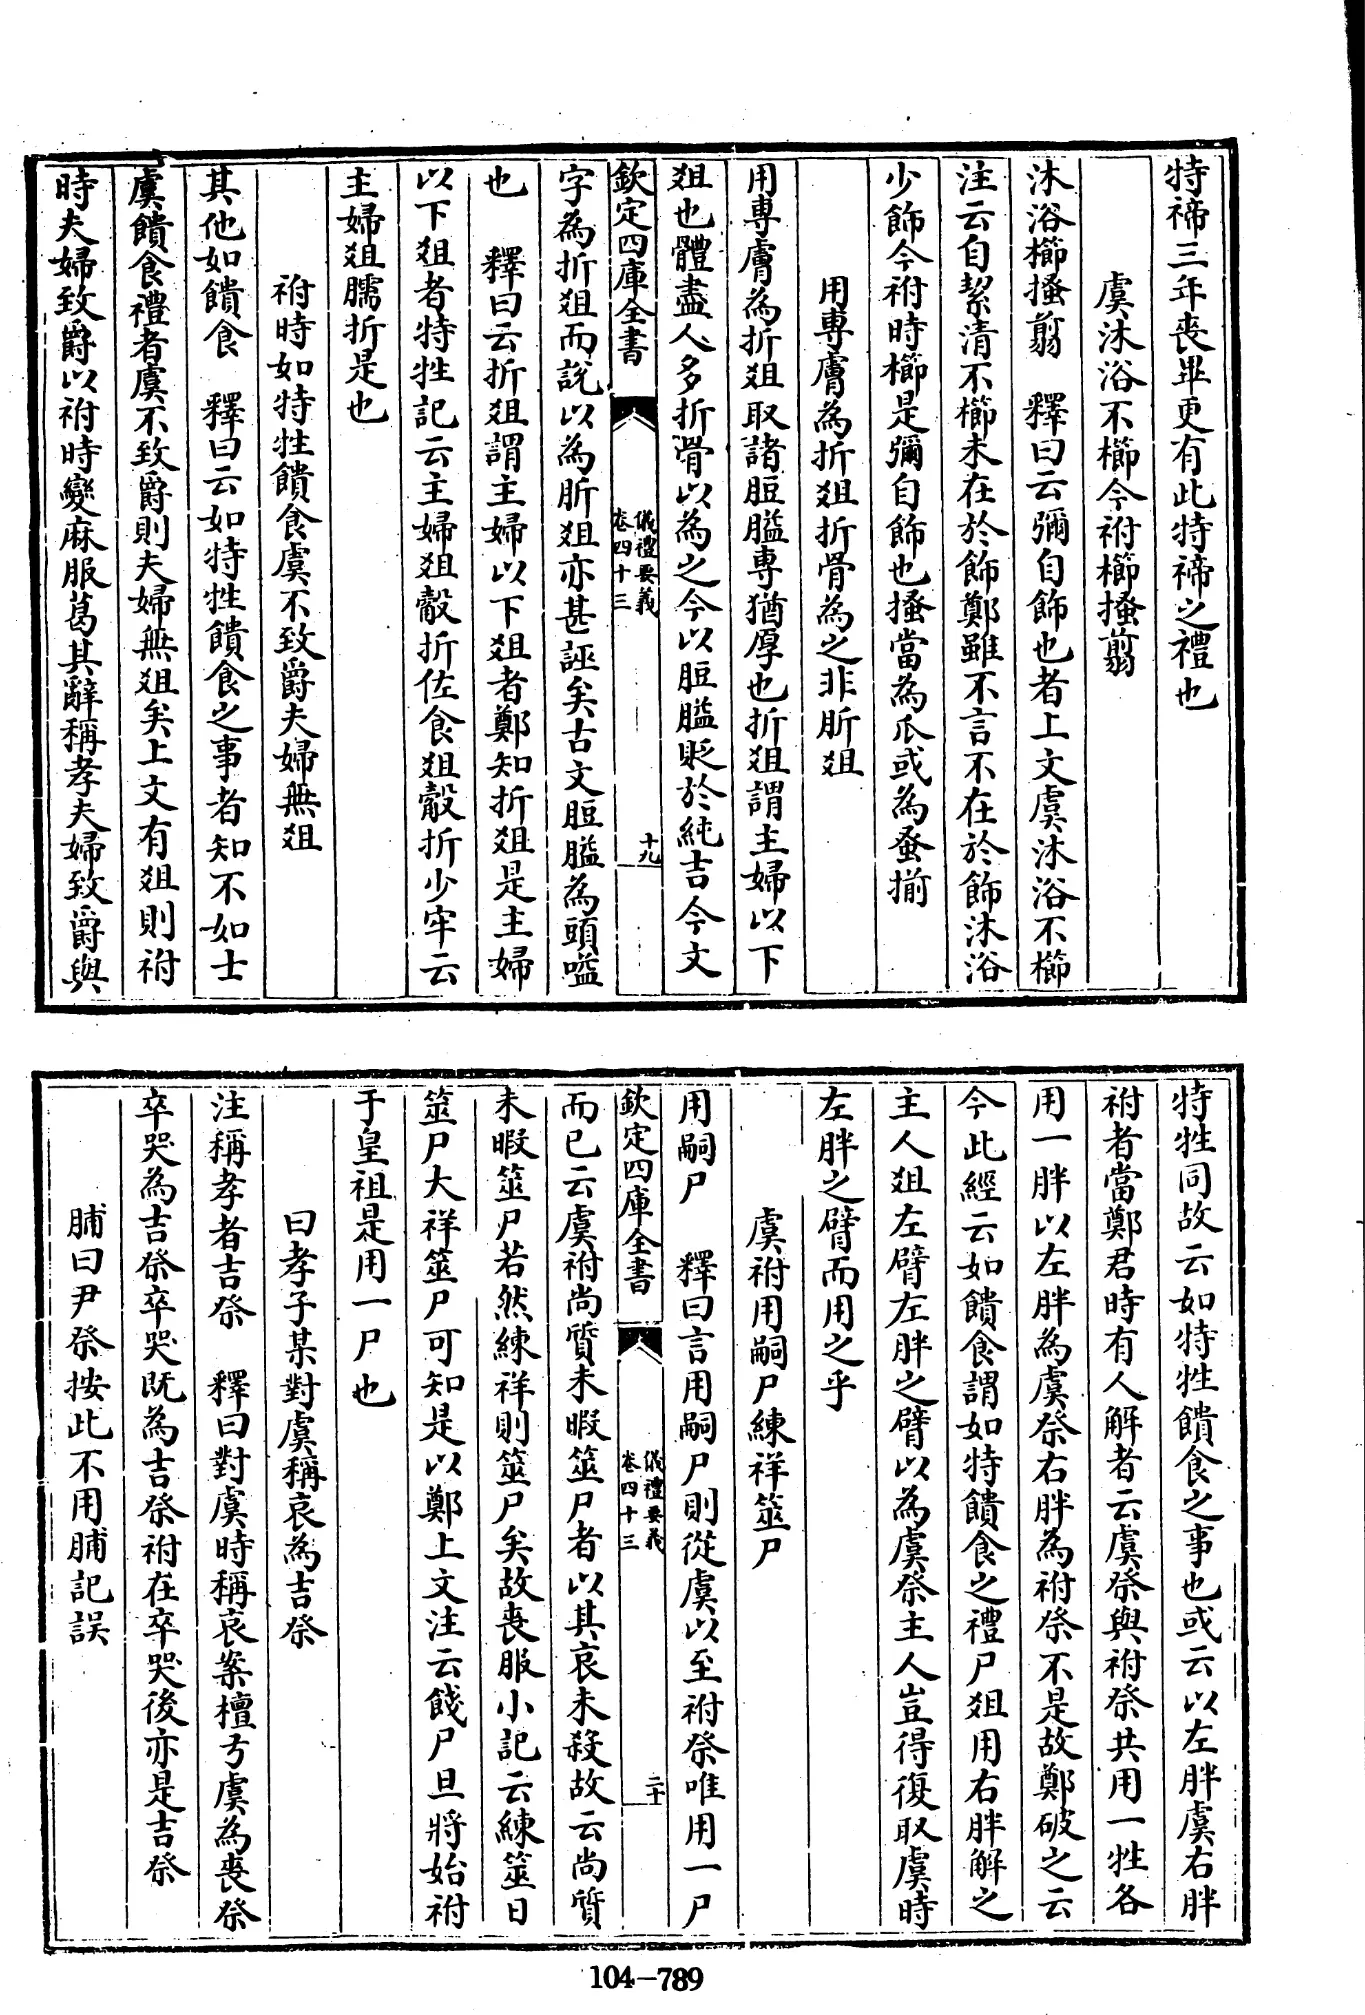 特禘三年喪畢更有此特禘之禮也
虞沐浴不櫛今祔櫛搔翦
沐浴櫛搔翦　釋曰云彌自飾也者上文虞沐浴不櫛
注云自絜清不櫛未在於飾鄭雖不言不在於飾沐浴
少飾今祔時櫛是彌自飾也搔當為爪或為蚤揃
用專膚為折俎折骨為之非肵俎
用專膚為折俎取諸脰膉專猶厚也折俎謂主婦以下
俎也體盡人多折骨以為之今以脰膉貶於純吉今文
欽定四庫全書
儀禮要義
卷四十三
十九
字為折俎而說以為肵俎亦甚誣矣古文脰膉為頭嗌
也　釋曰云折俎謂主婦以下俎者鄭知折俎是主婦
以下俎者特牲記云主婦俎觳折佐食俎觳折少牢云
主婦俎臑折是也
祔時如特牲饋食虞不致爵夫婦無俎
其他如饋食　釋曰云如特牲饋食之事者知不如士
虞饋食禮者虞不致爵則夫婦無俎矣上文有俎則祔
時夫婦致爵以祔時變麻服葛其辭稱孝夫婦致爵與
特牲同故云如特牲饋食之事也或云以左胖虞右胖
祔者當鄭君時有人解者云虞祭與祔祭共用一牲各
用一胖以左胖為虞祭右胖為祔祭不是故鄭破之云
今此經云如饋食謂如特饋食之禮尸俎用右胖解之
主人俎左臂左胖之臂以為虞祭主人豈得復取虞時
左胖之臂而用之乎
虞祔用嗣尸練祥筮尸
用嗣尸　釋曰言用嗣尸則從虞以至祔祭唯用一尸
欽定四庫全書
儀禮要義
卷四十三
二十
而已云虞祔尚質未暇筮尸者以其哀未殺故云尚質
未暇筮尸若然練祥則筮尸矣故喪服小記云練筮日
筮尸大祥筮尸可知是以鄭上文注云餞尸旦將始祔
于皇祖是用一尸也
曰孝子某對虞稱哀為吉祭
注稱孝者吉祭　釋曰對虞時稱哀案檀弓虞為喪祭
卒哭為吉祭卒哭既為吉祭祔在卒哭後亦是吉祭
脯曰尹祭按此不用脯記誤
104-789